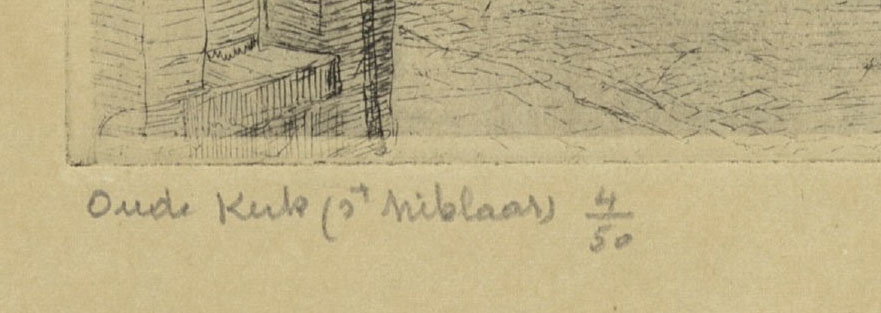 Oude Kerk (St Niklaas) 4/50